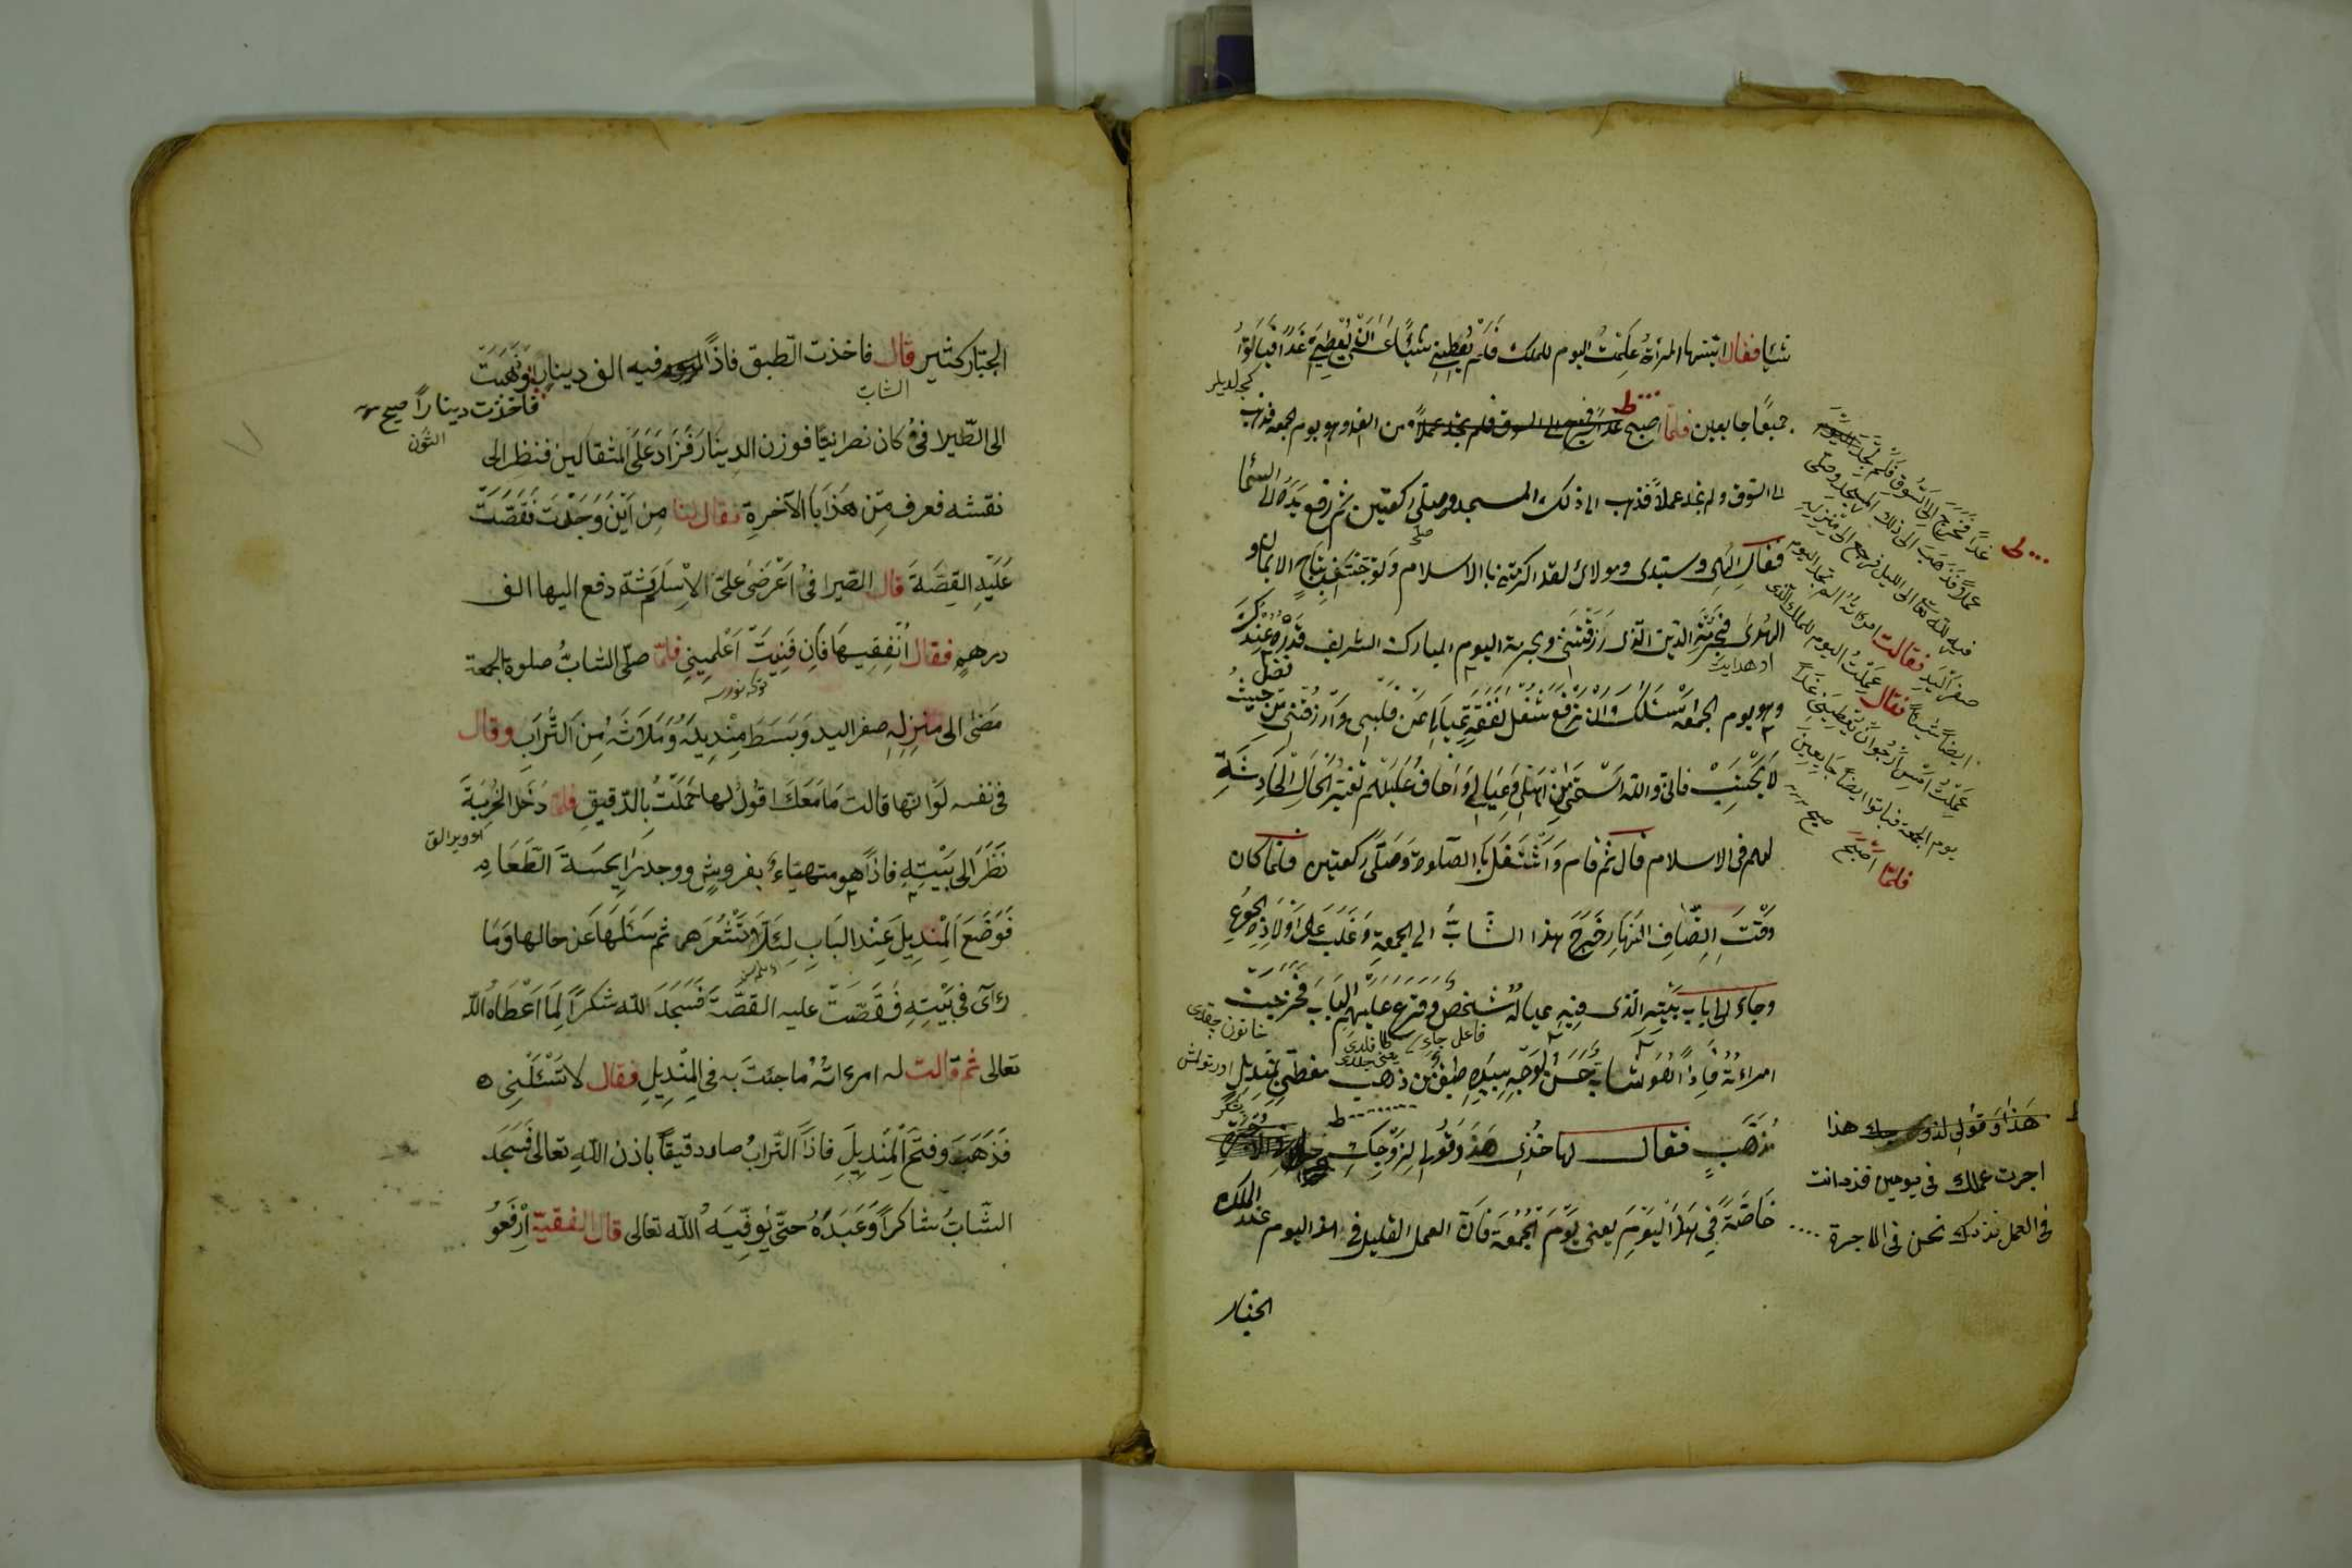 شيئا فقال ايتنها المرأة علمت اليوم للملك فلم يعطيني شيئا الى ان يعطيني غدا فباتوا
كجه لديلر
جميعا جايعين فلما اصبح غدا فخرج الى السوق فلم يجد عملا من الغد وهو يوم الجمعة فذهب
الى السوق ولم يجد عملا فذهب الى ذلك المسجد وصلى ركعتين ثم رفع يده الى السماء
فقال الهى وسيدى ومولائ لقد اكرمتنى بالاسلام وتوجتنى بتاج الايمان و
الهدى فبحرمة الدين الذى رزقتنى وبحرمة اليوم المبارك الشريف قدره عندك
وهو يوم الجمعة اسئلك ان ترفع شغل نفقة عيالى عن قلبى وارزقنى من حيث
لا يحتسب فانى والله استحيى من اهلى وعيالى واخاف عليهم تغير الحال لحادثة
لعلهم فى الاسلام قال ثم قام واشتغل بالصلوة وصلى ركعتين فلما كان
وقت انصاف النهار خرج هذا الشاب الى الجمعة وغلب على اولاده الجوع
وجاء الى باب بيته الذى فيه عياله شخص وقرع عليهم الباب فخرجت
فاعل جاء
خاتون چقدى
امرأته فاذا هو شاب حسن الوجه بيده طبق من ذهب مغطى بمنديل
مذهب فقال لها خذى هذ وقولى لزوجك
خاصة فى هذا اليوم يعنى يوم الجمعة فان العمل القليل فى هذا اليوم عند الملك
الجبار
غدا فخرج الى السوق فلم يجد
عملا فذهب الى ذلك المسجد وصلى
فيه لله تعالى الى الليل فرجع الى منزله
صفر اليد فقالت امرأته الم تجد اليوم
ايضا شيئا فقال عملت اليوم للملك الذى
عملت امس ارجو ان يعطينى غدا
يوم الجمعة فباتوا ايضا جايعين
فلما اصبح صح
هذا وقولى لزوجك هذا
اجرت عملك فى يومين فزد انت
فى العمل نزدك نحن فى الاجرة
الجبار كثير قال فاخذت الطبق فاذا فيه الف دينار وذهبت
الشاب
فاخذت دينارا صح
الى الصيرافى وكان نصرانيا فوزن الدينار فزاد على المثقالين فنظر الى
نقشه فعرف من هذايا الآخرة فقال لها من اين وجدت فقصت
عليه القصة قال الصيرافى اعرضى على الاسلام فاسلم ثم دفع اليها الف
درهم فقال انفقيها فان فنيت اعلمينى فلما صلى الشاب صلوة الجمعة
مضى الى منزله صفر اليد وبسط منديله وملأته من التراب وقال
فى نفسه لو انها قالت ما معك اقول لها حملت بالدقيق فلما دخل الخربة
نظر الى بيته فاذا هو متهياء بفروش ووجد رايحة الطعام
فوضع المنديل عند الباب لئلا تشعر هى ثم سئلها عن حالها وما
رءآى فى بيته فقصت عليه القصة فسجد لله شكرا لما اعطاه الله
تعالى ثم قالت له امرءاته ما جئت به فى المنديل فقال لا تسئلنى
فذهب وفتح المنديل فاذا التراب صار دقيقا باذن الله تعالى فسجد
الشاب شاكرا وعبده حتى يوفيه الله تعالى قال الفقيه ارفعو